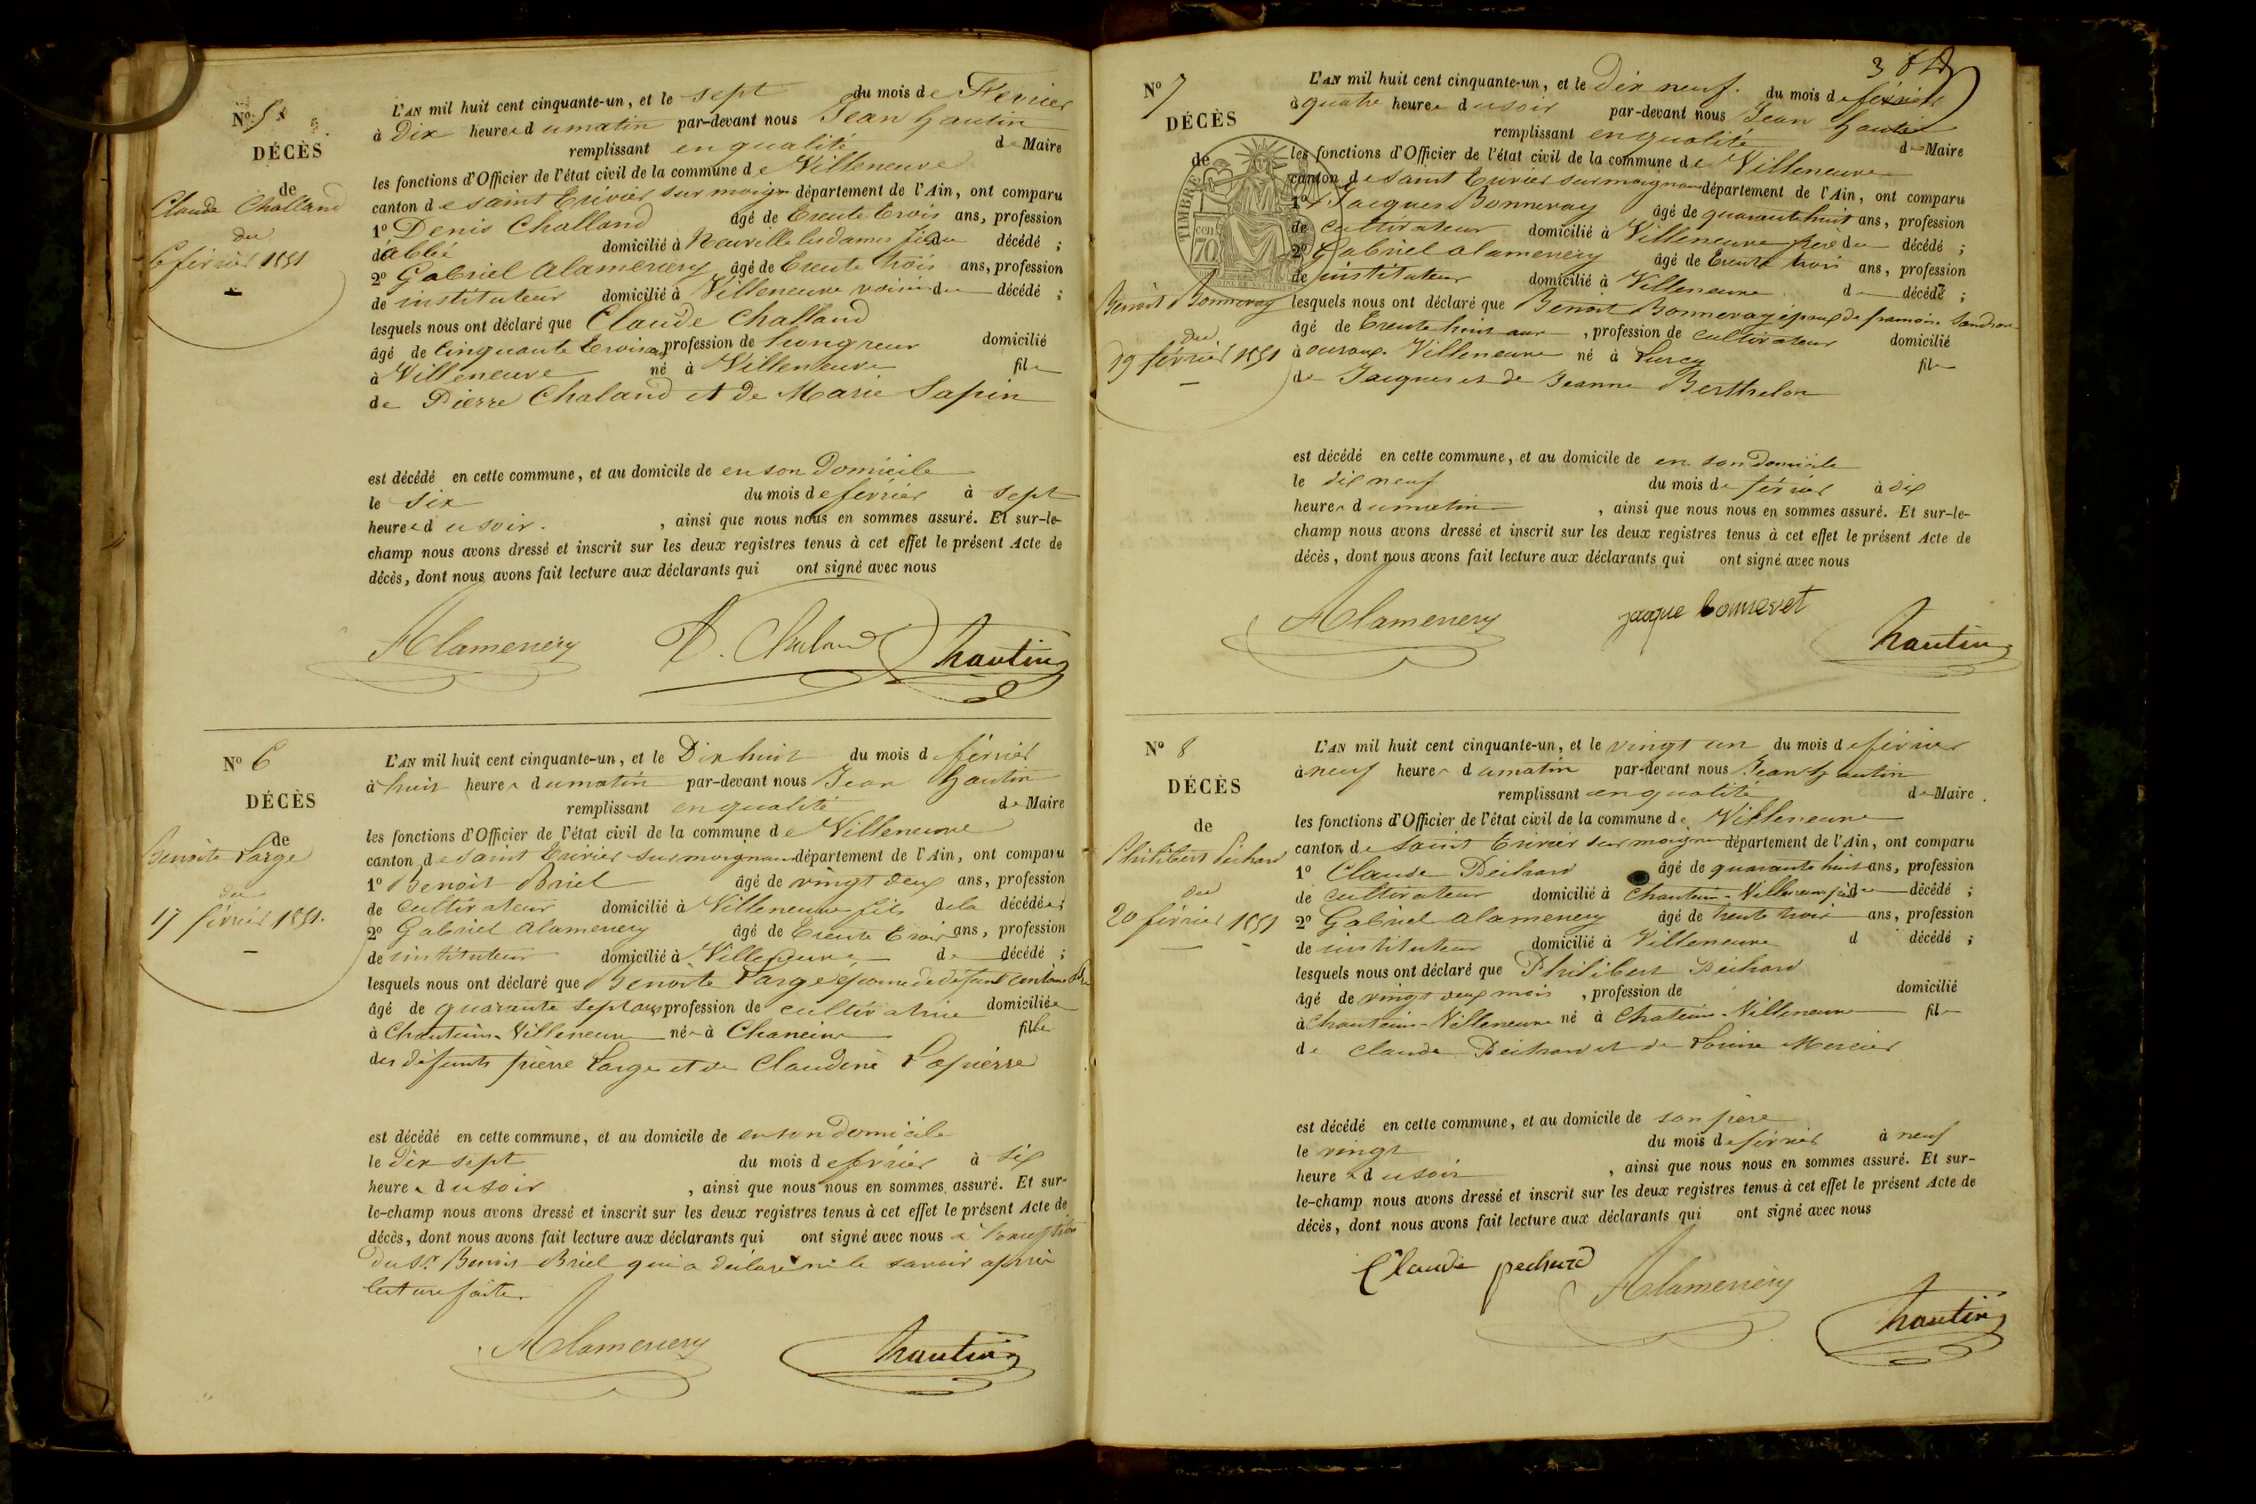 Nº 5
DÉCÈS
de
Claude Challand
du
6 février 1851
L'AN mil huit cent cinquante-un, et le sept du mois de Février
à Dix heures du matin par-devant nous Jean hautin
remplissant en qualité de Maire
les fonctions d'Officier de l'état civil de la commune de Villeneuve
canton de saint trivier sur moign département de l'Ain, ont comparu
1º Denis Challand âgé de trente trois ans, profession
d'abbé domicilié à Neuville les dames du décédé ;
2º Gabriel alamercery âgé de trente trois ans, profession
de instituteur domicilié à Villeneuve voisin du décédé ;
lesquels nous ont déclaré que Claude Challand
âgé de Cinquante trois ans profession de hongreur domicilié
à Villeneuve né à Villeneuve fils
de Pierre Chaland et de Marie Sapin
est décédé en cette commune, et au domicile de en son Domicile
le six du mois de février à sept
heures du soir. , ainsi que nous nous en sommes assuré. Et sur-le-
champ nous avons dressé et inscrit sur les deux registres tenus à cet effet le présent Acte de
décès, dont nous avons fait lecture aux déclarants qui ont signé avec nous
Alamercery D. Chaland hautin
Nº 6
DÉCÈS
de
Benoite Large
du
17 février 1851.
L'AN mil huit cent cinquante-un, et le Dix huit du mois de février
à huit heures du matin par-devant nous Jean hautin
remplissant en qualité de Maire
les fonctions d'Officier de l'état civil de la commune de Villeneuve
canton de saint trivier sur moignans département de l'Ain, ont comparu
1º Benoit Briel âgé de vingt deux ans, profession
de cultivateur domicilié à Villeneuve fils de la décédée ;
2º Gabriel alamercery âgé de trente trois ans, profession
de instituteur domicilié à Villeneuve de décédé ;
lesquels nous ont déclaré que Benoite Large de défunt antoine
âgé de quarante sept ans profession de cultivatrice domiciliée
à Chanteins-Villeneuve née à Chaneins fille
des défunts pierre Large et de Claudine Lapierre
est décédé en cette commune, et au domicile de en son Domicile
le dix sept du mois de février à six
heures du soir , ainsi que nous nous en sommes assuré. Et sur-
le-champ nous avons dressé et inscrit sur les deux registres tenus à cet effet le présent Acte de
décès, dont nous avons fait lecture aux déclarants qui ont signé avec nous à l'exception
du Sr Benoit Briel qui a déclaré ne le savoir après
lecture faite
Alamercery hautin
3
Nº 7
DÉCÈS
de
Benoit Bonnevay
du
19 février 1851
TIMBRE
CEN
70
L'AN mil huit cent cinquante-un, et le Dix neuf du mois de février
à quatre heures du soir par-devant nous Jean hautin
remplissant en qualité de Maire
les fonctions d'Officier de l'état civil de la commune de Villeneuve
canton de saint trivier sur moignans département de l'Ain, ont comparu
1º Jacques Bonnevay âgé de quarante huit ans, profession
de cultivateur domicilié à Villeneuve frère du décédé ;
2º Gabriel alamercery âgé de trente trois ans, profession
de instituteur domicilié à Villeneuve de décédé ;
lesquels nous ont déclaré que Benoit Bonnevay époux de
âgé de trente huit ans , profession de cultivateur domicilié
à Villeneuve né à Lurcy fils
de Jacques et de Jeanne Berthelon
est décédé en cette commune, et au domicile de en son Domicile
le dix neuf du mois de février à dix
heures du matin , ainsi que nous nous en sommes assuré. Et sur-le-
champ nous avons dressé et inscrit sur les deux registres tenus à cet effet le présent Acte de
décès, dont nous avons fait lecture aux déclarants qui ont signé avec nous
Alamercery jaque bonnevet hautin
Nº 8
DÉCÈS
de
Philibert Péchard
du
20 février 1851
L'AN mil huit cent cinquante-un, et le vingt un du mois de février
à neuf heures du matin par-devant nous Jean hautin
remplissant en qualité de Maire
les fonctions d'Officier de l'état civil de la commune de Villeneuve
canton de saint trivier sur moignans département de l'Ain, ont comparu
1º Claude Péchard âgé de quarante huit ans, profession
de cultivateur domicilié à Chanteins-Villeneuve père du décédé ;
2º Gabriel alamercery âgé de trente trois ans, profession
de instituteur domicilié à Villeneuve d décédé ;
lesquels nous ont déclaré que Philibert Péchard
âgé de vingt deux mois , profession de domicilié
à chanteins-Villeneuve né à Chateins-Villeneuve fils
de Claude Péchard et de Louise Mercier
est décédé en cette commune, et au domicile de son père
le vingt du mois de février à neuf
heures du soir , ainsi que nous nous en sommes assuré. Et sur-
le-champ nous avons dressé et inscrit sur les deux registres tenus à cet effet le présent Acte de
décès, dont nous avons fait lecture aux déclarants qui ont signé avec nous
Claude pechard Alamercery hautin